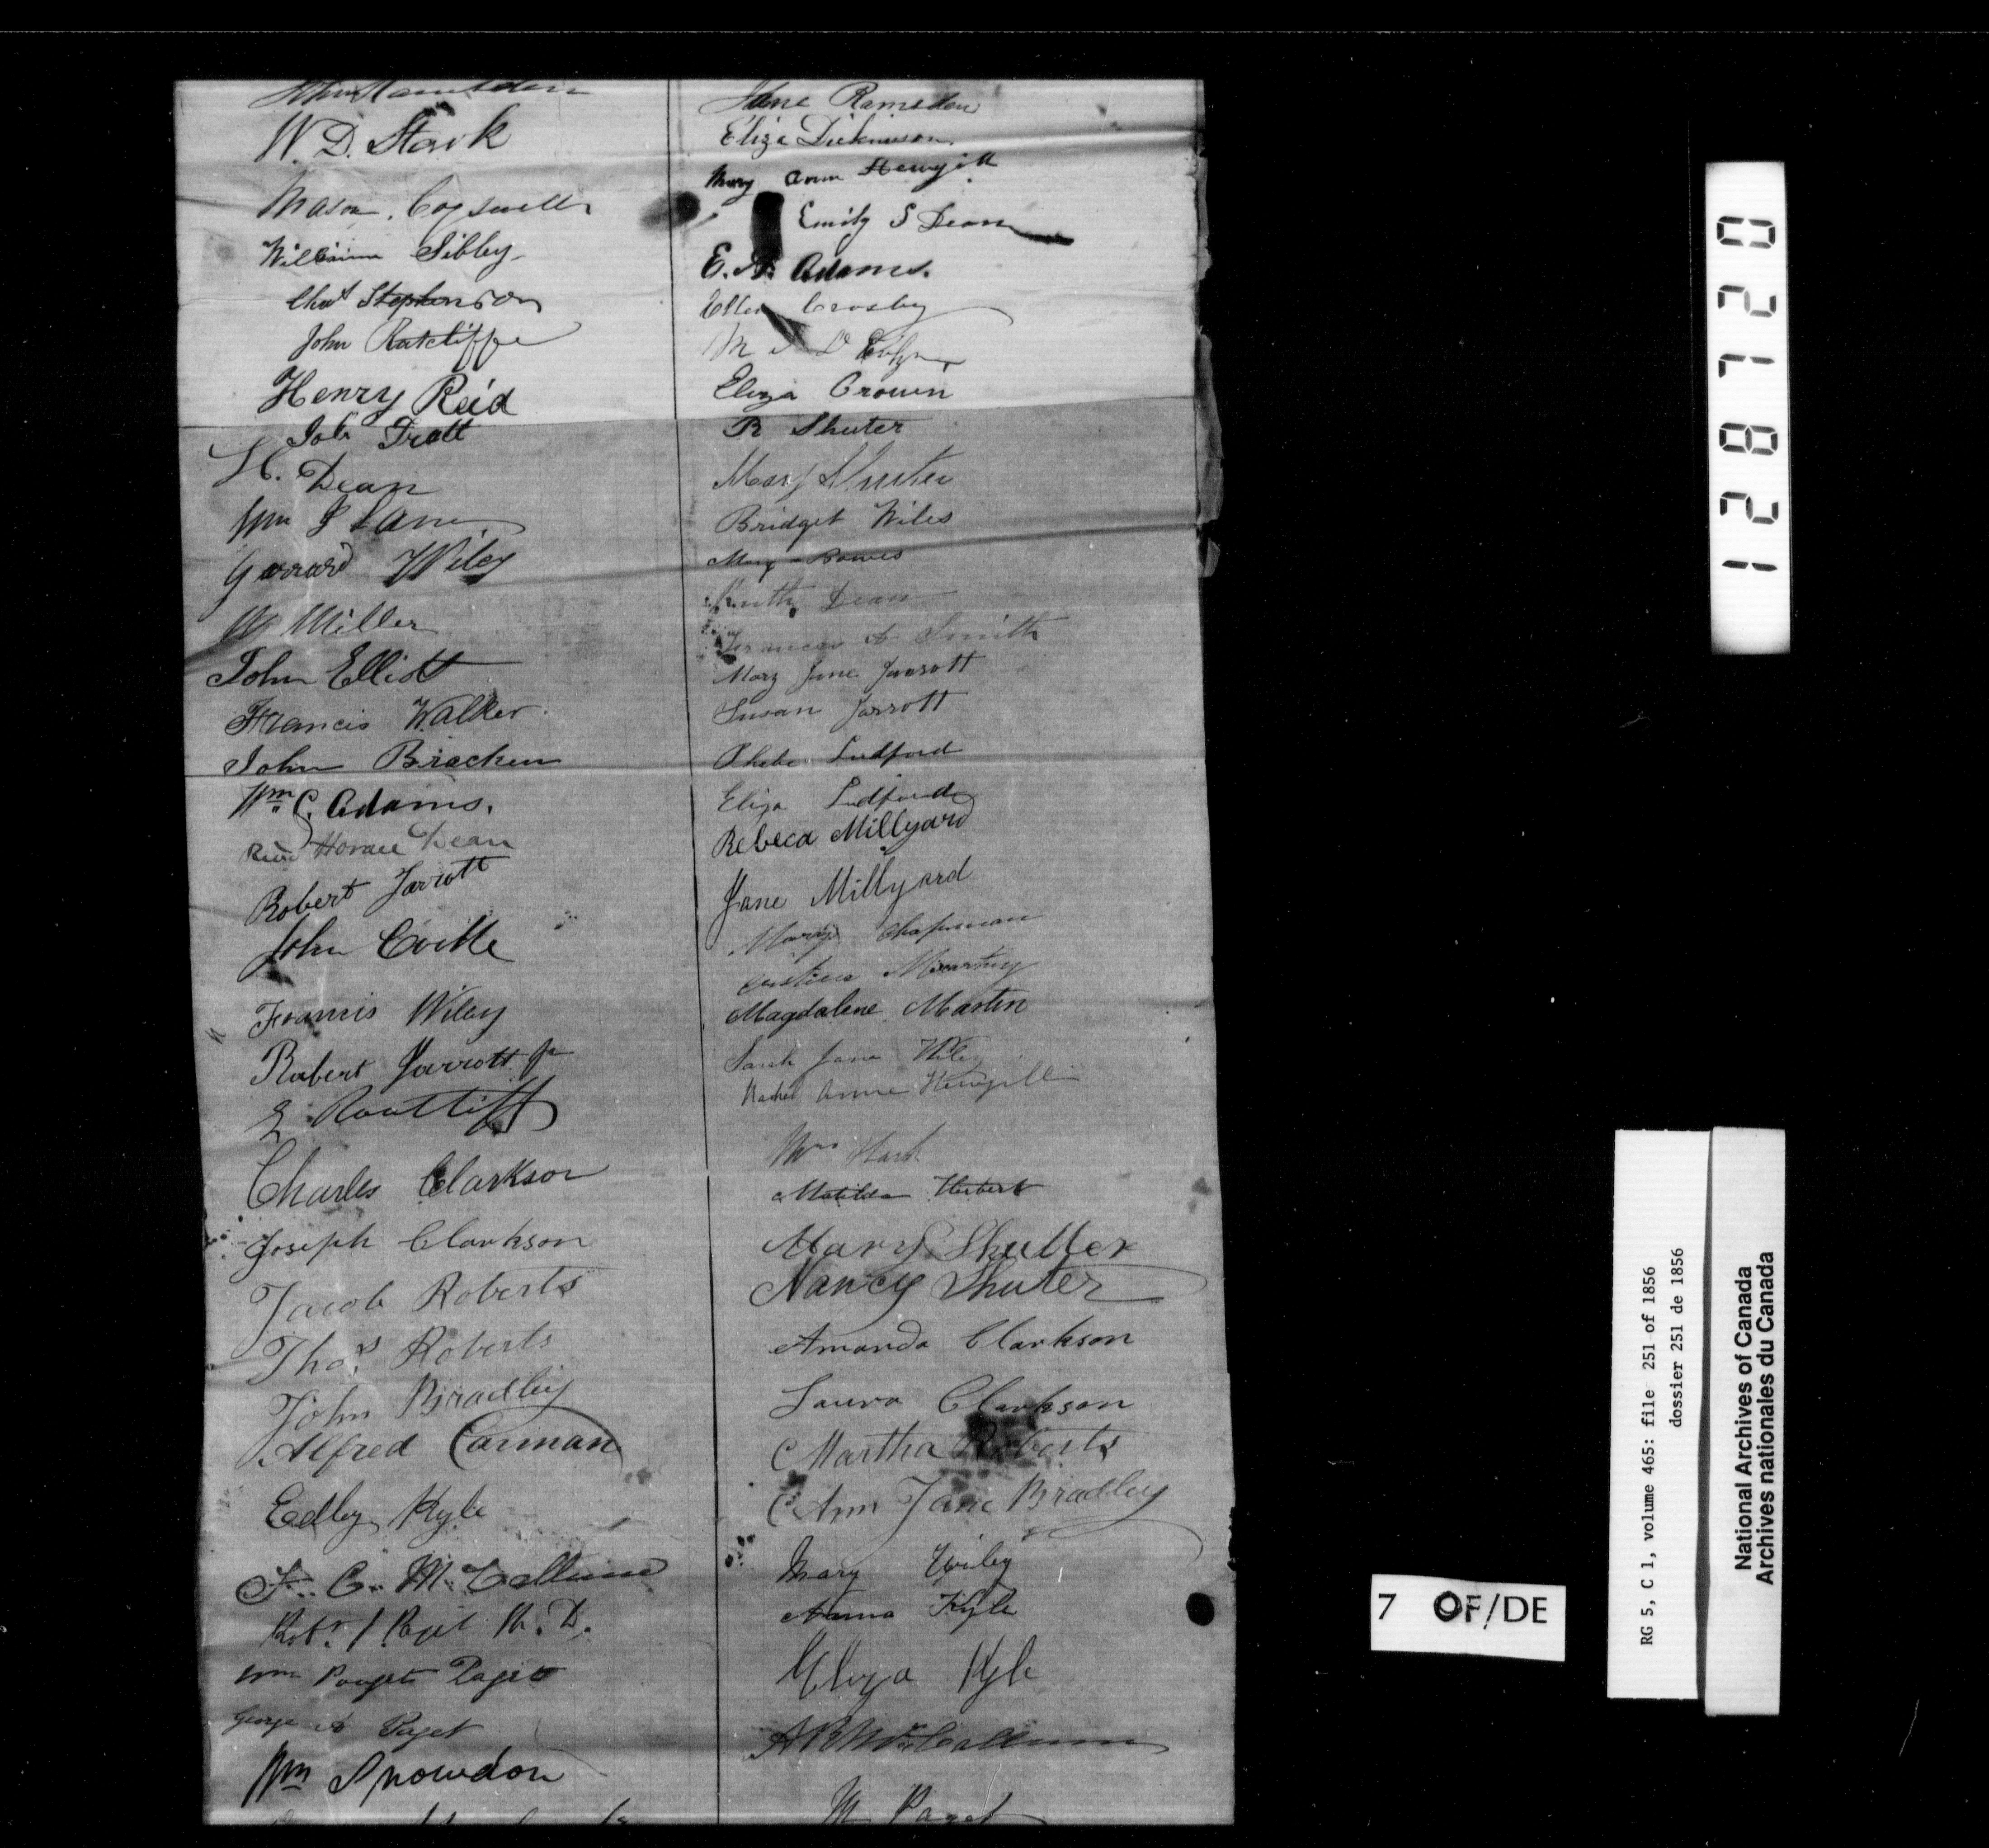 John Ramsden
W. D. Stark
Mason Cogswell
William Sibley
Chas Stephenson
John Ratcliffe
Henry Reid
Job Trott
H. Dean
Wm J Lane
Garrard Wiley
W Miller
John Elliott
Francis Walker
John Bracken
Wm C. Adams.
Revd Horace Dean
Robert Jarrott
John Coille
Francis Wiley
Robert Jarrott Jr
E Routliff
Charles Clarkson
Joseph Clarkson
Jacob Roberts
Thos Roberts
John Bradley
Alfred Carman
Edley Kyle
F. C. McCallum
Robt M. D.
Wm Paget
George A Paget
Wm Snowdon
Jane Ramsden
Eliza Dickinson
Mary Ann Hewgill
Emily S Dean
E. A. Adams.
Ellen Crosby
M
Eliza Crowin
R Shuter
Mary Shuter
Bridget Wiles
Mary Bowes
Ruth Dean
Frances A Smith
Mary Jane Jarrott
Susan Jarrott
Phebe Ludford
Eliza Ludford
Rebeca Millyard
Jane Millyard
Mary Chapman
Magdalene Martin
Sarah Jane Wiley
Rachel Anne Hewgill
Mrs Stark
Matilda Herbert
Mary Shutter
Nancy Shuter
Amanda Clarkson
Laura Clarkson
Martha Roberts
Ann Jane Bradley
Mary Wiley
Anna Kyle
Eliza Kyle
A R McCallum
M Paget
127820
7 OF/DE
RG 5, C 1, volume 465: file 251 of 1856
dossier 251 de 1856
National Archives of Canada
Archives nationales du Canada